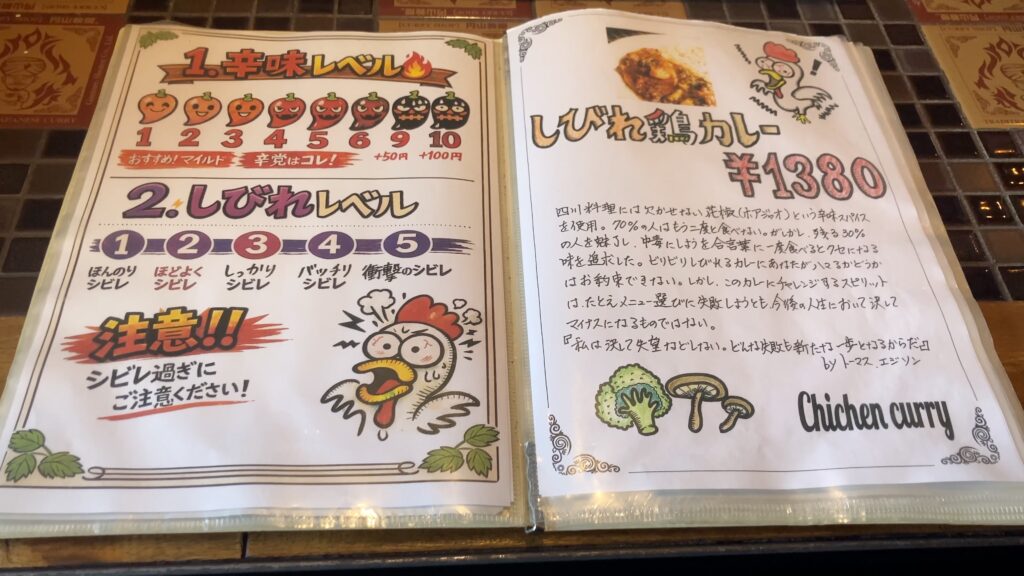 1.辛味レベル
1 2 3 4 5 6 9 10
おすすめ!マイルド 辛党はコレ! +50円 +100円
2.しびれレベル
1 2 3 4 5
ほんのり ほどよく しっかり バッチリ 衝撃のシビレ
シビレ シビレ シビレ シビレ
注意!!
シビレ過ぎに
ご注意ください!
しびれ鶏カレー
¥1380
四川料理には欠かせない花椒(ホアジャオ)という辛味スパイス
を使用。70%の人はもう二度と食べない。がしかし、残る30%
の人を魅了し、中毒にしようを合言葉に一度食べるとクセになる
味を追求した。ピリピリしびれるカレーにあなたがハマるかどうか
はお約束できない。しかし、このカレーにチャレンジするスピリット
は、たとえメニュー選びに失敗しようとも今後の人生において決して
マイナスになるものではない。
『私は決して失望などしない。どんな失敗も新たな一歩となるからだ』
by トーマス.エジソン
Chichen curry